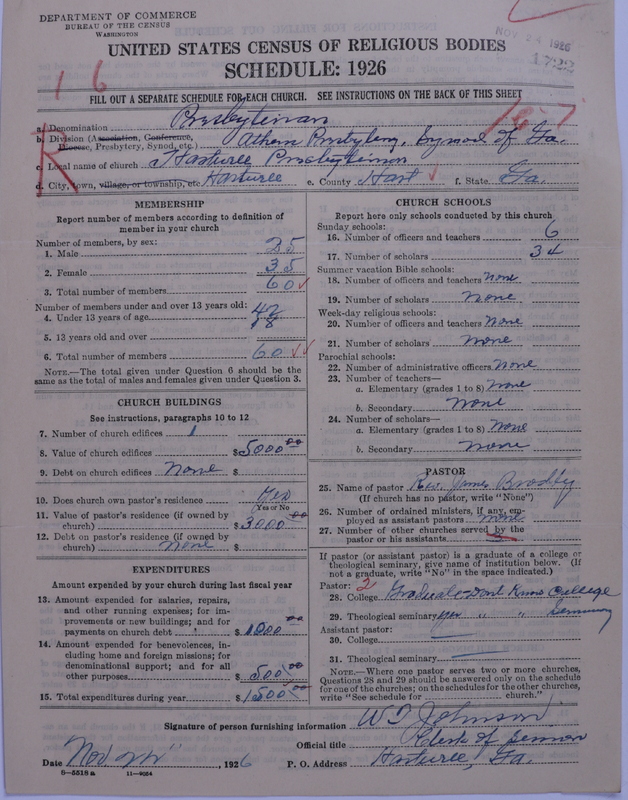 DEPARTMENT OF COMMERCE
BUREAU OF THE CENSUS
WASHINGTON
NOV 24 1926
1722
UNITED STATES CENSUS OF RELIGIOUS BODIES
SCHEDULE: 1926
16
FILL OUT A SEPARATE SCHEDULE FOR EACH CHURCH. SEE INSTRUCTIONS ON THE BACK OF THIS SHEET
a. Denomination Presbyterian
b. Division (Association, Conference, Diocese, Presbytery, Synod, etc.) Athens Presbytery, Synod of Ga.
c. Local name of church Hartwell Presbyterian
d. City, town, village, or township, etc. Hartwell e. County Hart f. State Ga.
MEMBERSHIP
Report number of members according to definition of
member in your church
Number of members, by sex:
1. Male 25
2. Female 35
3. Total number of members 60
Number of members under and over 13 years old:
4. Under 13 years of age 42
18
5. 13 years old and over
6. Total number of members 60
NOTE.—The total given under Question 6 should be the
same as the total of males and females given under Question 3.
CHURCH BUILDINGS
See instructions, paragraphs 10 to 12
7. Number of church edifices 1
8. Value of church edifices $5000 00
9. Debt on church edifices None $
10. Does church own pastor's residence Yes
(Yes or No)
11. Value of pastor's residence (if owned by
church) $3000 00
12. Debt on pastor's residence (if owned by
church) None $
EXPENDITURES
Amount expended by your church during last fiscal year
13. Amount expended for salaries, repairs,
and other running expenses; for im-
provements or new buildings; and for
payments on church debt $1000 00
14. Amount expended for benevolences, in-
cluding home and foreign missions; for
denominational support; and for all
other purposes $500 00
15. Total expenditures during year $1500 00
CHURCH SCHOOLS
Report here only schools conducted by this church
Sunday schools:
16. Number of officers and teachers 6
17. Number of scholars 34
Summer vacation Bible schools:
18. Number of officers and teachers None
19. Number of scholars None
Week-day religious schools:
20. Number of officers and teachers None
21. Number of scholars None
Parochial schools:
22. Number of administrative officers None
23. Number of teachers—
a. Elementary (grades 1 to 8) None
b. Secondary None
24. Number of scholars—
a. Elementary (grades 1 to 8) None
b. Secondary None
PASTOR
25. Name of pastor Rev. James Bradley
(If church has no pastor, write "None")
26. Number of ordained ministers, if any, em-
ployed as assistant pastors none
27. Number of other churches served by the
pastor or his assistants 3
If pastor (or assistant pastor) is a graduate of a college or
theological seminary, give name of institution below. (If
not a graduate, write "No" in the space indicated.)
Pastor: 2
28. College Graduate - Dont Know College
29. Theological seminary Yes " " Seminary
Assistant pastor:
30. College
31. Theological seminary
NOTE.—Where one pastor serves two or more churches,
Questions 28 and 29 should be answered only on the schedule
for one of the churches; on the schedules for the other churches,
write "See schedule for church."
Signature of person furnishing information W T Johnson
Official title Clerk of Session
Date Nov 22", 1926 P. O. Address Hartwell, Ga.
8—5518 a 11—9054